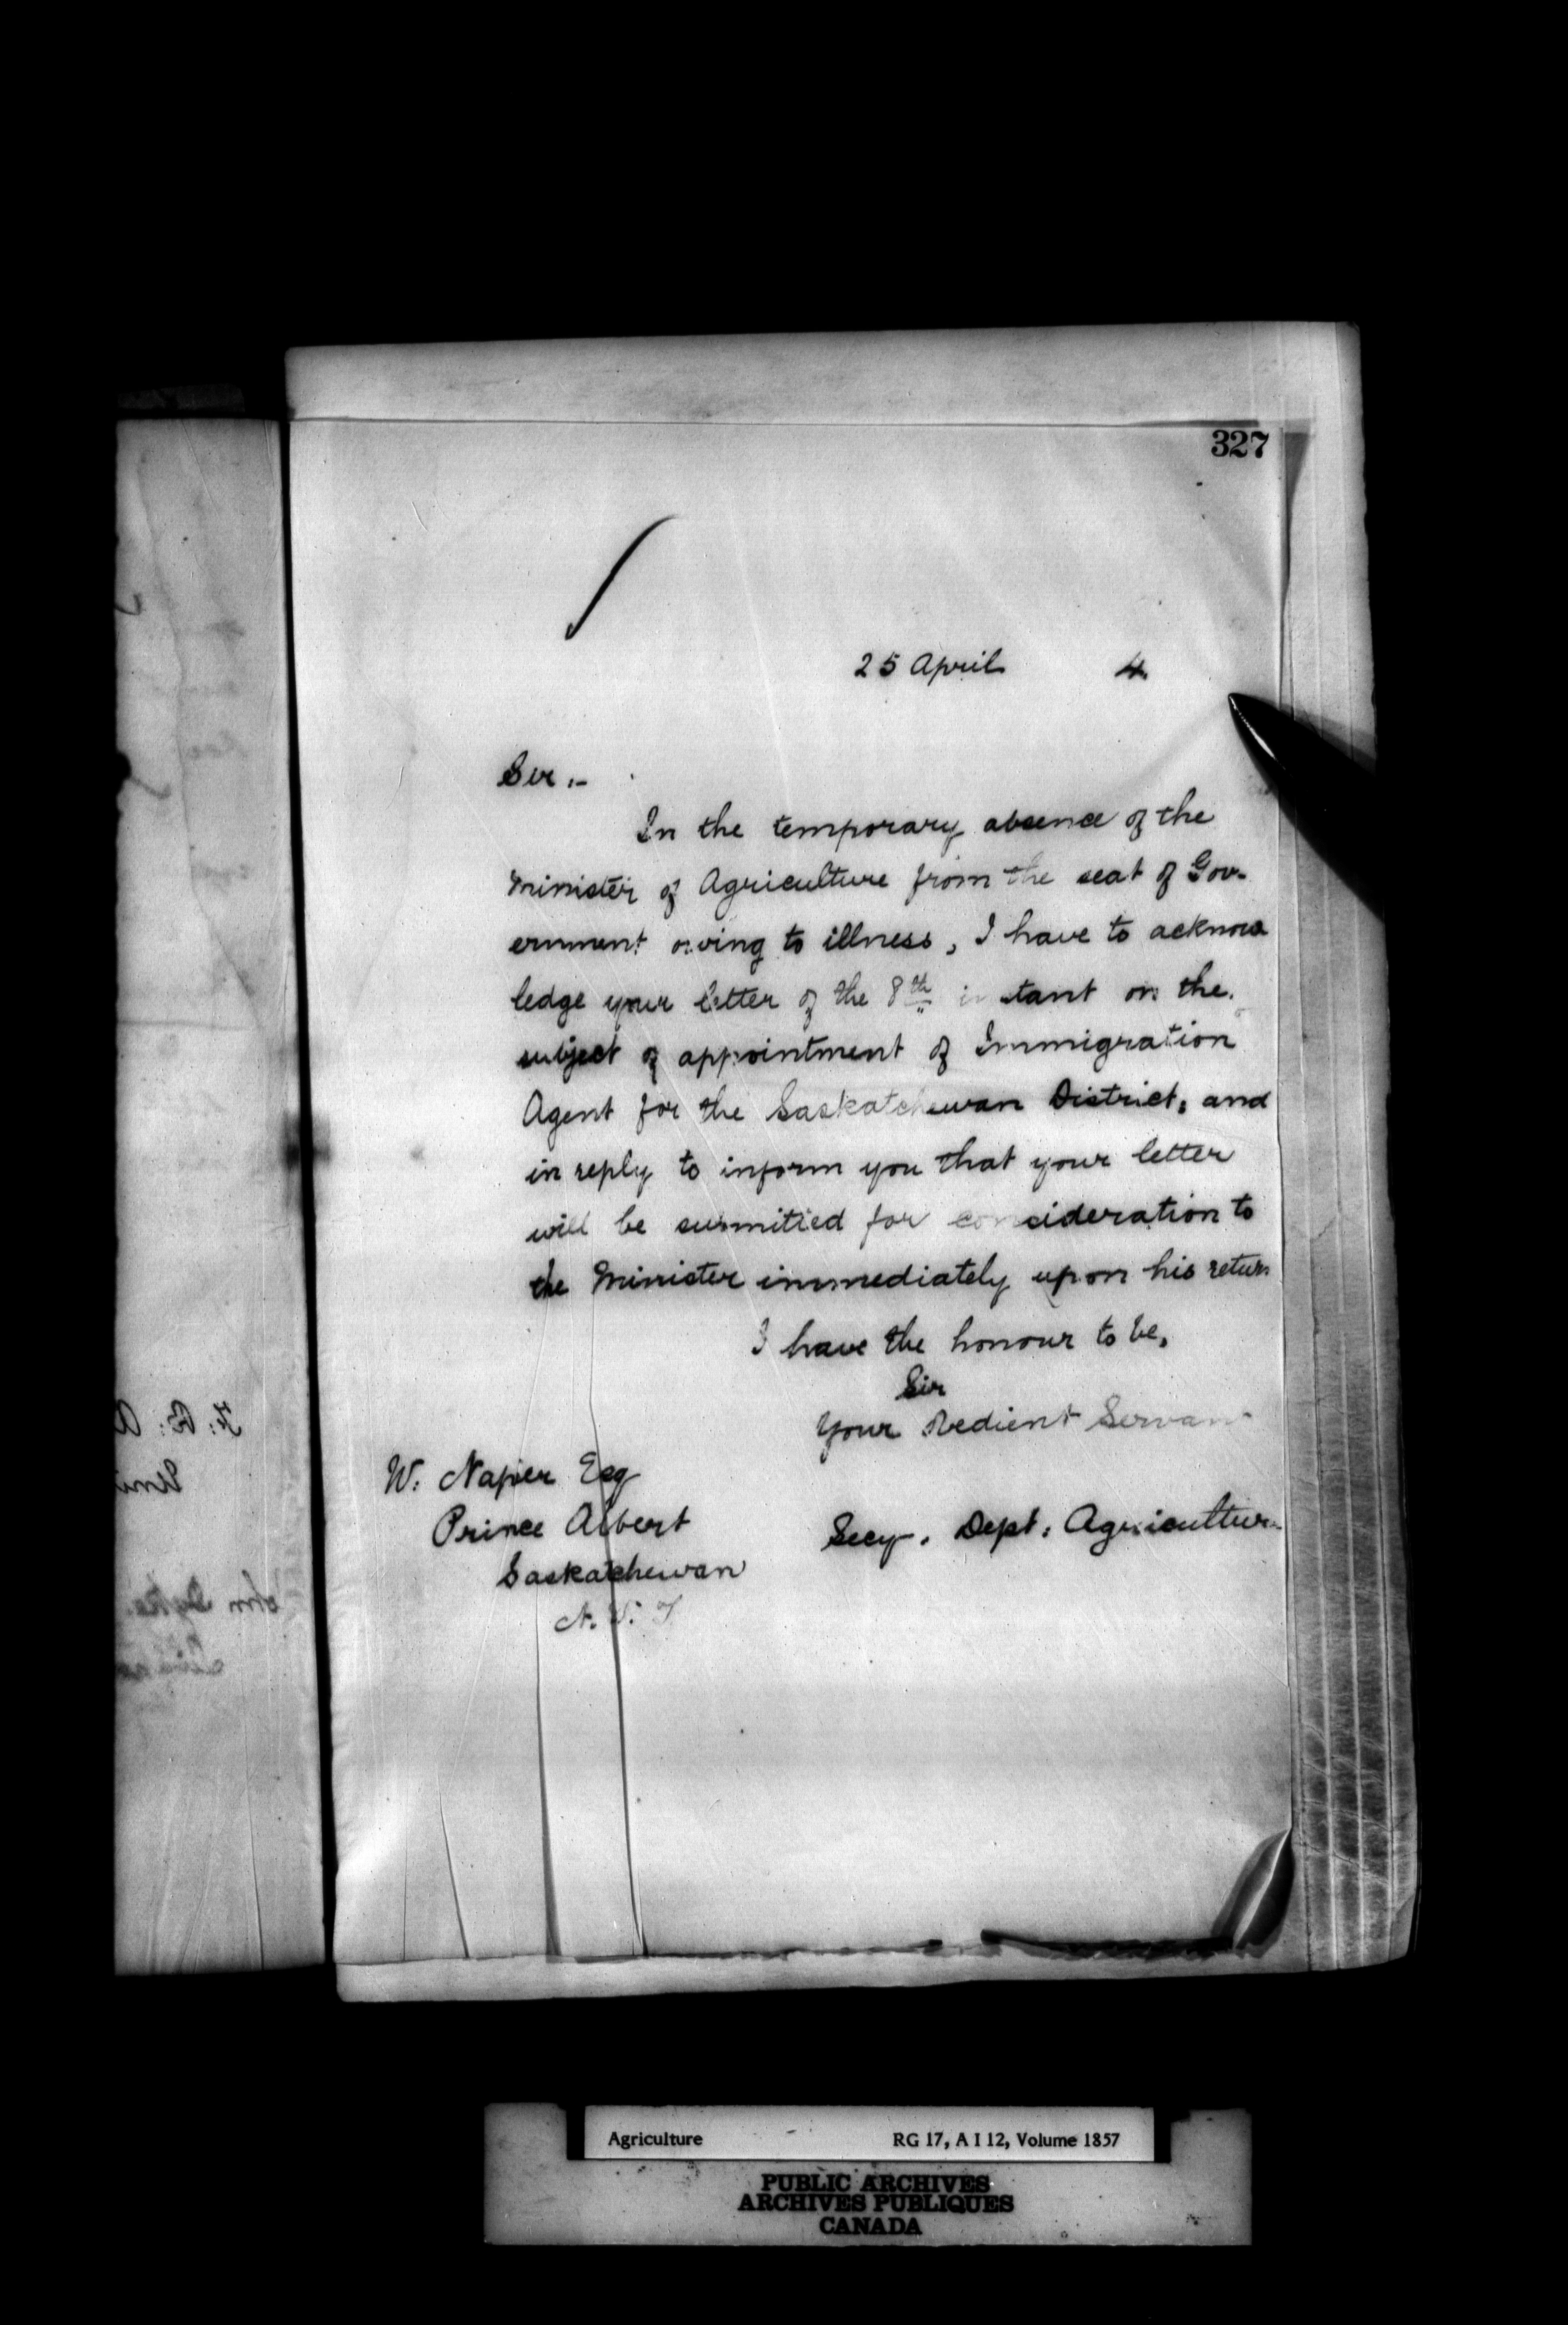 327
25 April 4.
Sir,-
In the temporary absence of the
Minister of Agriculture from the seat of Gov-
ernment owing to illness, I have to acknow
ledge your letter of the 8th instant on the
subject of appointment of Immigration
Agent for the Saskatchewan District, and
in reply to inform you that your letter
will be submitted for consideration to
the Minister immediately upon his return
I have the honour to be,
Sir
Your Obedient Servant
W. Napier Esq
Prince Albert
Secy. Dept: Agriculture
Saskatchewan
N. W. T
Agriculture RG 17, A I 12, Volume 1857
PUBLIC ARCHIVES
ARCHIVES PUBLIQUES
CANADA